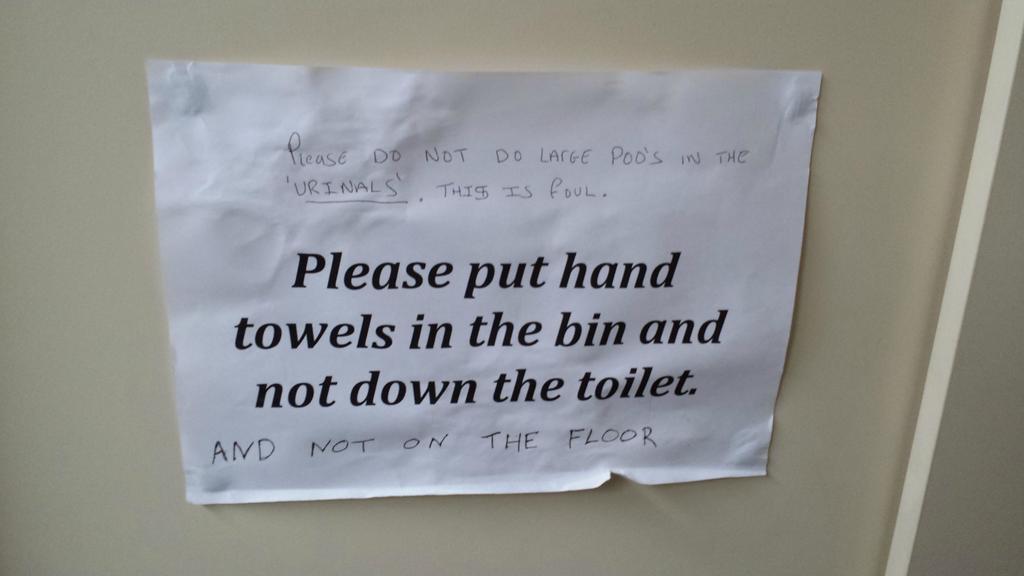 Please DO NOT DO LARGE POO'S IN THE
'URINALS'. THIS IS FOUL.
Please put hand
towels in the bin and
not down the toilet.
AND NOT ON THE FLOOR